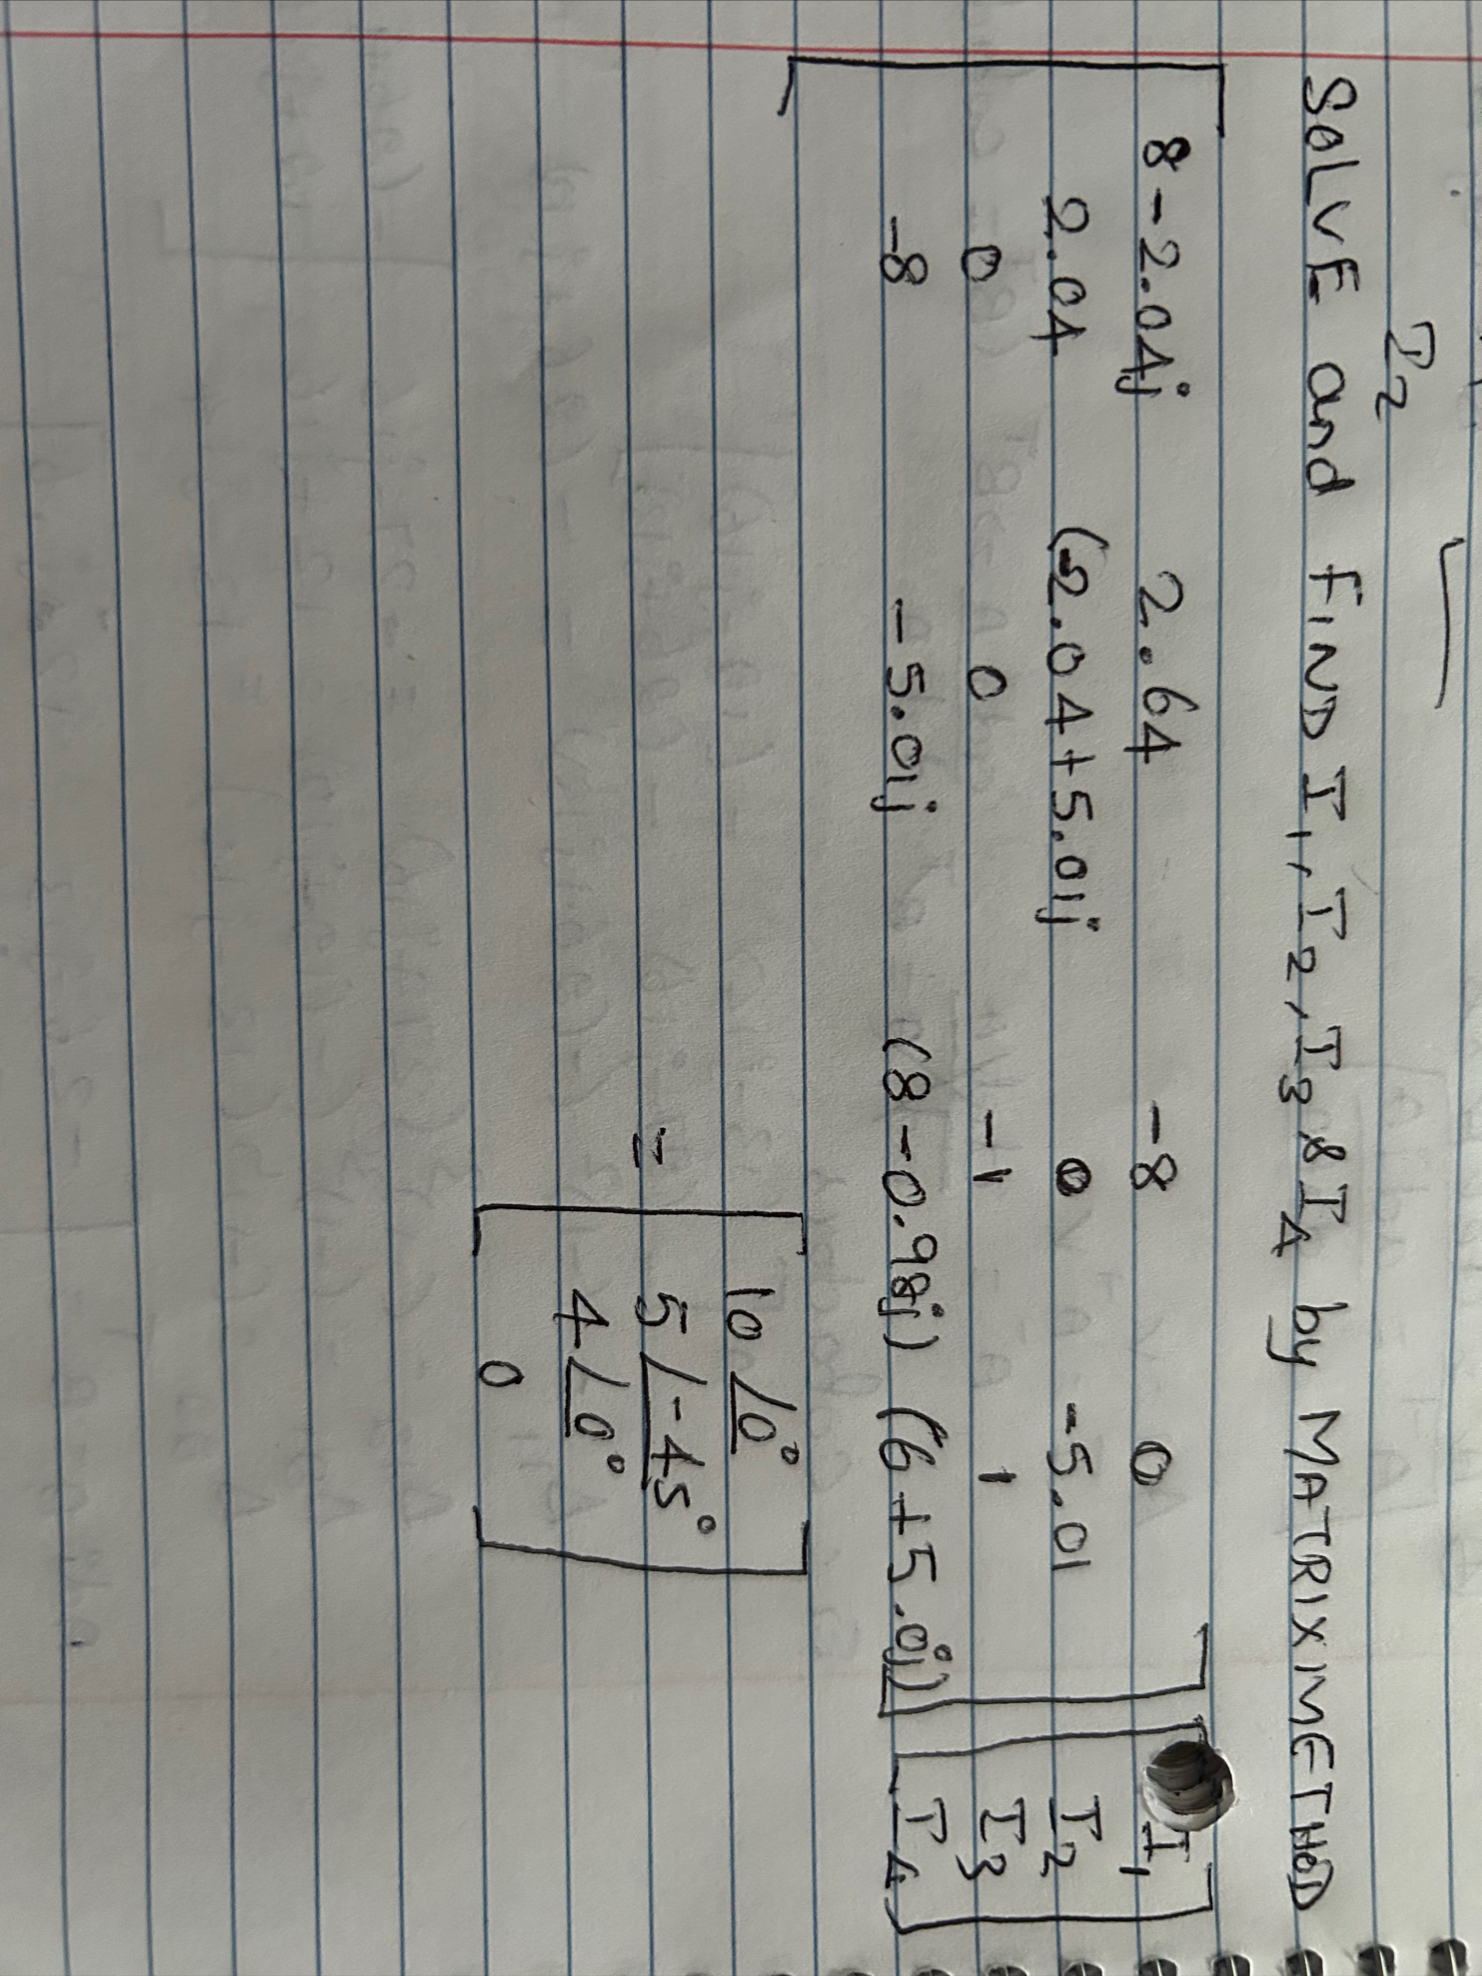 I2
SOLVE and FIND I1, I2, I3 & I4 by MATRIX METHOD
8-2.04j 2.64 -8 0 I1
2.04 (-2.04+5.01j 0 -5.01 I2
0 0 -1 1 I3
-8 -5.01j (8-0.98j) (6+5.0j) I4
10∠0°
= 5∠-45°
4∠0°
0